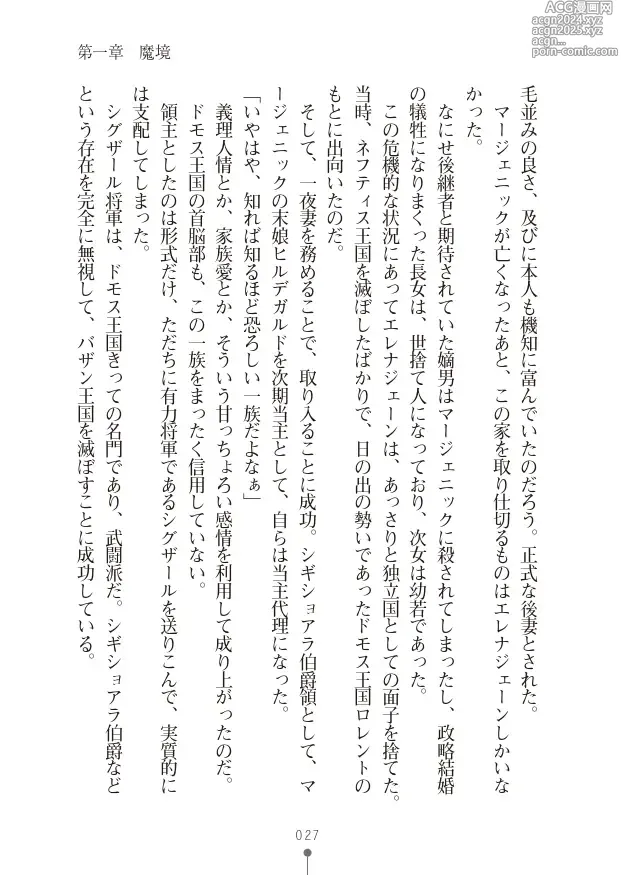 ACG漫画网
acgn2024.xyz
acgn2025.xyz
porn-comic.com
第一章　魔境
毛並みの良さ、及びに本人も機知に富んでいたのだろう。正式な後妻とされた。
　マージェニックが亡くなったあと、この家を取り仕切るものはエレナジェーンしかいな
かった。
　なにせ後継者と期待されていた嫡男はマージェニックに殺されてしまったし、政略結婚
の犠牲になりまくった長女は、世捨て人になっており、次女は幼若であった。
　この危機的な状況にあってエレナジェーンは、あっさりと独立国としての面子を捨てた。
当時、ネフティス王国を滅ぼしたばかりで、日の出の勢いであったドモス王国ロレントの
もとに出向いたのだ。
　そして、一夜妻を務めることで、取り入ることに成功。シギショアラ伯爵領として、マ
ージェニックの末娘ヒルデガルドを次期当主として、自らは当主代理になった。
「いやはや、知れば知るほど恐ろしい一族だよなぁ」
　義理人情とか、家族愛とか、そういう甘っちょろい感情を利用して成り上がったのだ。
　ドモス王国の首脳部も、この一族をまったく信用していない。
　領主としたのは形式だけ、ただちに有力将軍であるシグザールを送りこんで、実質的に
は支配してしまった。
　シグザール将軍は、ドモス王国きっての名門であり、武闘派だ。シギショアラ伯爵など
という存在を完全に無視して、バザン王国を滅ぼすことに成功している。
027